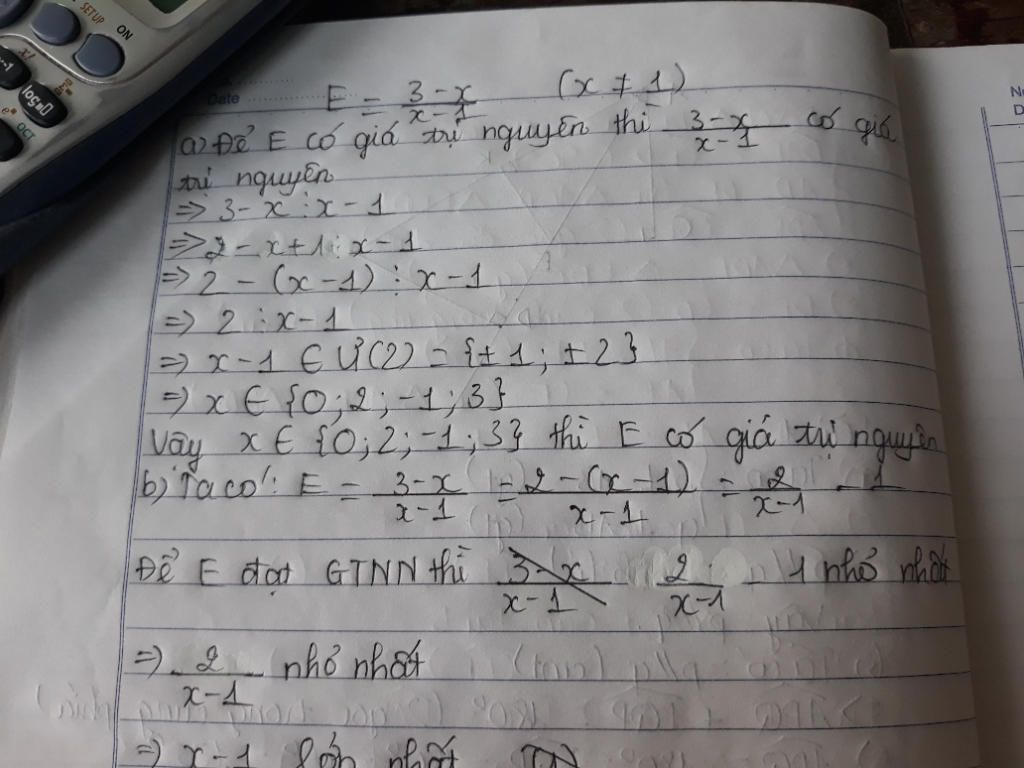 SETUP
ON
x!
x⁻¹
logₐ□
eˣ
OCT
Date
E = 3-x / x-1 (x ≠ 1)
a) Để E có giá trị nguyên thì 3-x / x-1 có giá
trị nguyên
=> 3-x ⋮ x-1
=> 2-x+1 ⋮ x-1
=> 2-(x-1) ⋮ x-1
=> 2 ⋮ x-1
=> x-1 ∈ Ư(2) = {±1; ±2}
=> x ∈ {0; 2; -1; 3}
Vậy x ∈ {0; 2; -1; 3} thì E có giá trị nguyên
b) Ta có: E = 3-x / x-1 = 2-(x-1) / x-1 = 2 / x-1 - 1
Để E đạt GTNN thì 3-x / x-1 2 / x-1 - 1 nhỏ nhất
=> 2 / x-1 nhỏ nhất
=> x-1 lớn nhất